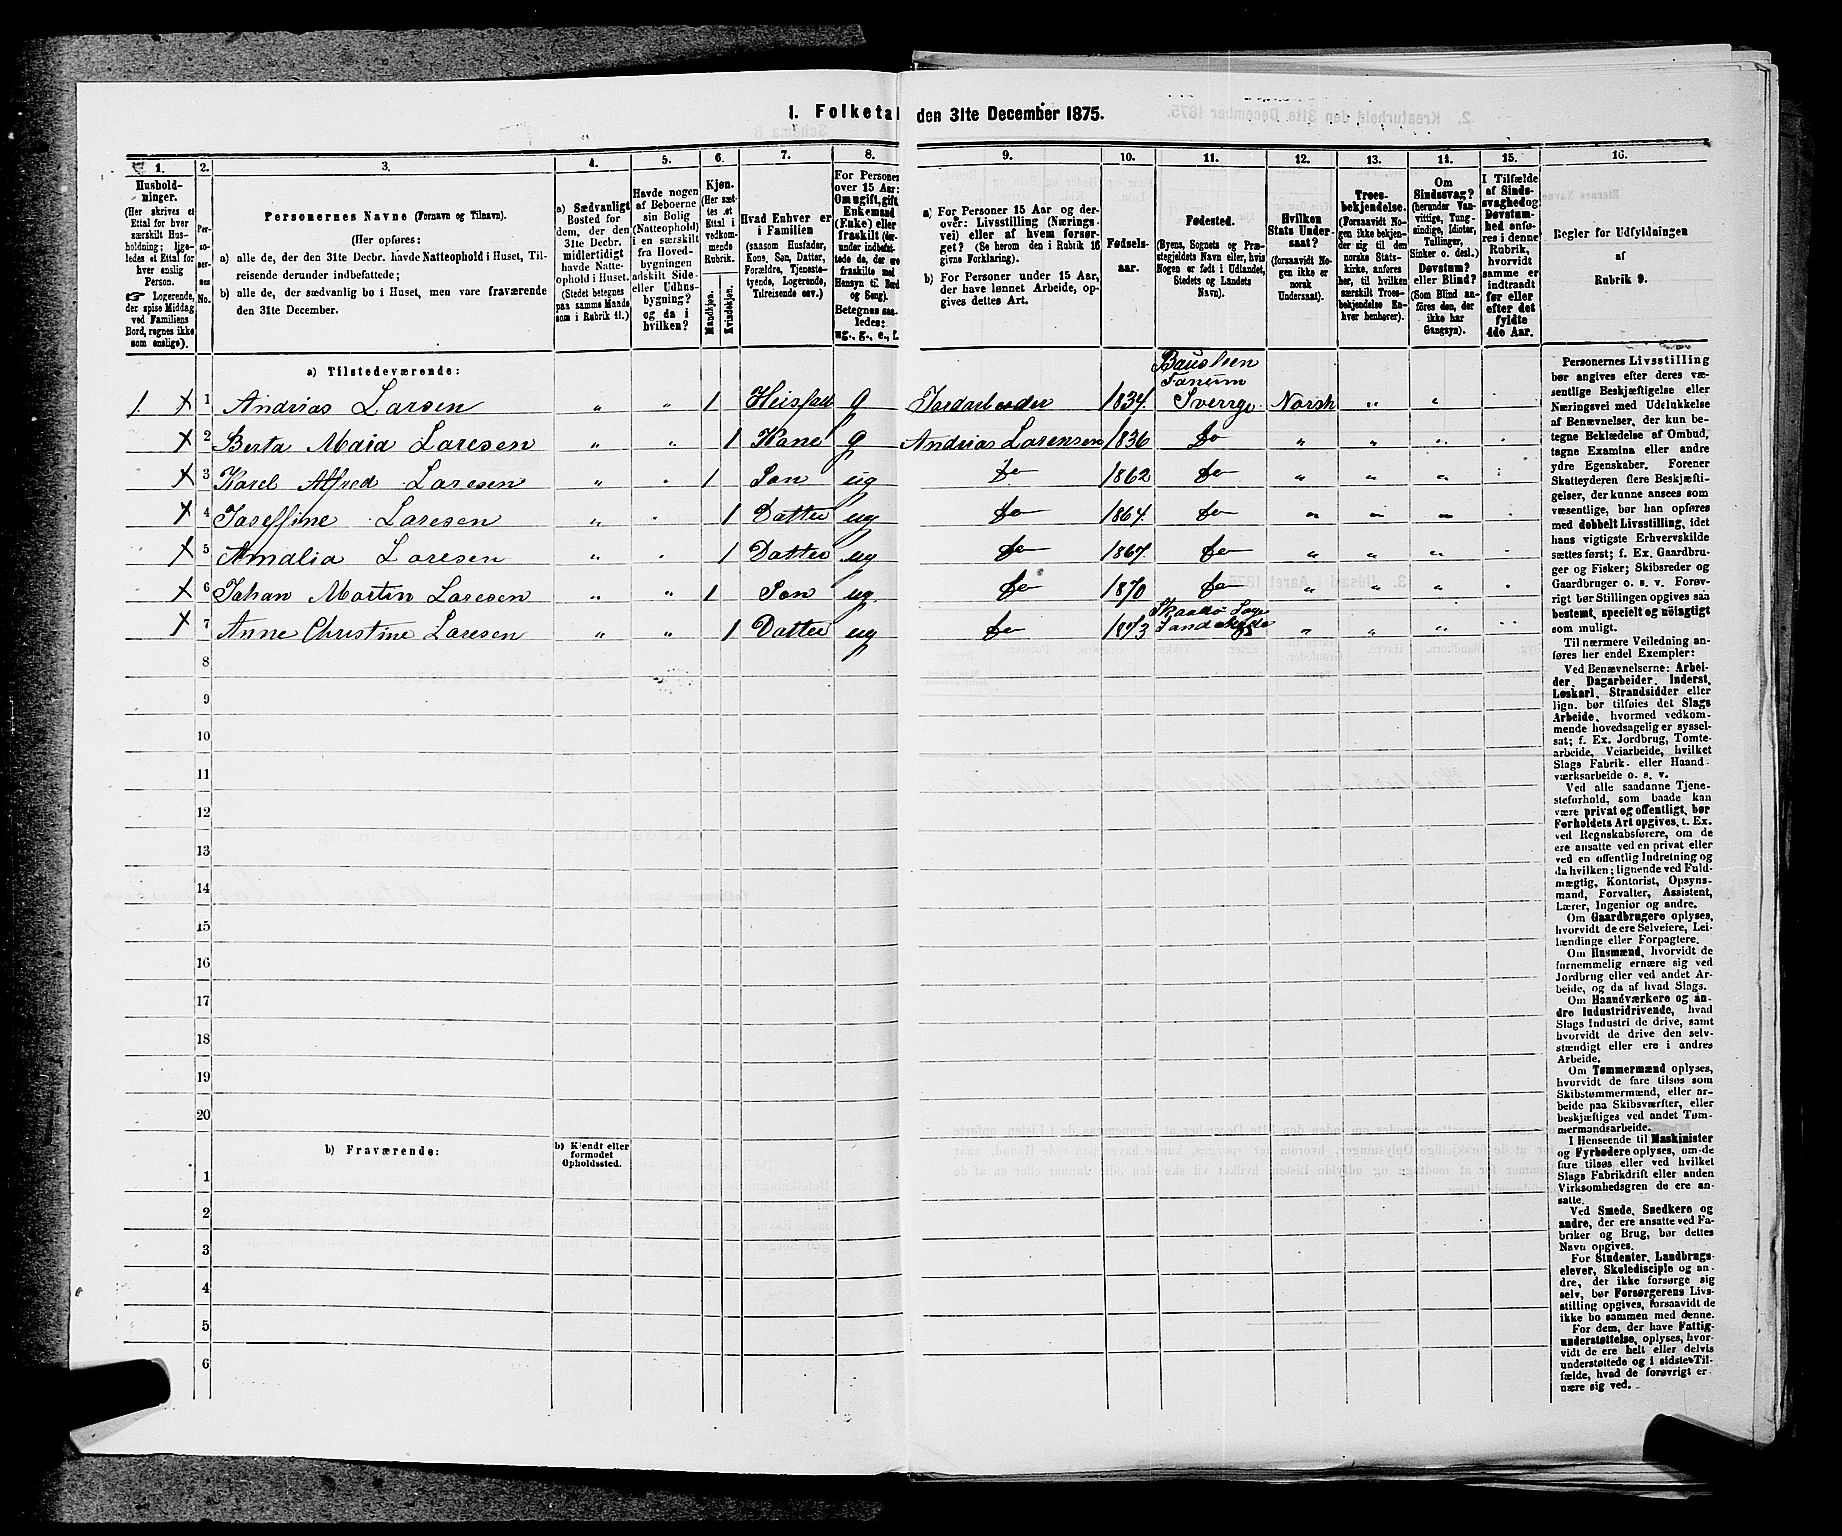 1. Folketal den 31te December 1875.
1. 2. 3. 4. 5. 6. 7. 8. 9. 10. 11. 12. 13. 14. 15. 16.
Husholdninger.
(Her skrives et
Ettal for hver
særskilt Husholdning;
ligeledes
et Ettal for
hver enslig
Person.
☞ Logerende,
der spise Middag
ved Familiens
Bord, regnes ikke
som enslige).
Personernes No.
Personernes Navne (Fornavn og Tilnavn).
(Her opføres:
a) alle de, der den 31te Decbr. havde Natteophold i Huset, Tilreisende
derunder indbefattede;
b) alle de, der sædvanlig bo i Huset, men vare fraværende
den 31te December.
a) Sædvanligt
Bosted for
dem, der den
31te Decbr.
midlertidigt
havde Natteophold
i Huset.
(Stedet betegnes
paa samme Maade
som i Rubrik 11.)
Havde nogen
af Beboerne
sin Bolig
(Natteophold)
i en særskilt
fra Hovedbygningen
adskilt Side-
eller Udhusbygning?
og da i
hvilken?
Kjøn.
(Her sættes
et
Ettal i
vedkommende
Rubrik.
Mandkjøn.
Kvindekjøn.
Hvad Enhver er
i Familien
(saasom Husfader,
Kone, Søn, Datter,
Forældre, Tjenestetyende,
Logerende,
Tilreisende osv.)
For Personer
over 15 Aar:
Om ugift, gift,
Enkemand
(Enke) eller
fraskilt
Betegnes saaledes:
ug., g., e., f.
a) For Personer 15 Aar og derover:
Livsstilling (Næringsvei)
eller af hvem forsørget?
(Se herom den i Rubrik 16
givne Forklaring).
b) For Personer under 15 Aar,
der have lønnet Arbeide, opgives
dettes Art.
Fødselsaar.
Fødested.
(Byens, Sognets og Præstegjeldets
Navn eller, hvis
Nogen er født i Udlandet,
Stedets og Landets
Navn).
Hvilken
Stats Undersaat?
(forsaavidt Nogen
ikke er
norsk
Undersaat).
Troesbekjendelse.
(Forsaavidt Nogen
ikke bekjender
sig til den
norske Statskirke,
anføres
her, til hvilken
særskilt Troesbekjendelse
Enhver
henhører).
Om
Sindssvag?
(herunder Vanvittige,
Tungsindige,
Idioter,
Tullinger,
Sinker o. desl.)
Døvstum?
eller Blind?
(Som Blind anføres
den, der
ikke har
Gangsyn).
I Tilfælde
af Sindssvaghed
og
Døvstumhed
anføres
i denne
Rubrik,
hvorvidt
samme er
indtraadt
før eller
efter det
fyldte
4de Aar.
Regler for Udfyldningen
af
Rubrik 9.
a) Tilstedeværende:
1. × 1 Andrias Larsen „ „ 1 Husfad g Jordarbeider 1834. Sverrge Norsk „ „
× 2 Berta Maia Laresen „ „ 1 Kone g Andrias Larensen 1836 do „ „ „
× 3 Karel Alfred Laresen „ 1 Søn ug do 1862 do „ „ „
× 4 Joseffine Laresen „ 1 Datter ug do 1864. do „ „ „
× 5 Amalia Laresen „ 1 Datter ug do 1867. do „ „ „
× 6 Johan Martin Laresen „ „ 1 Søn ug. do 1870 do „ „ „
× 7 Anne Christine Laresen „ „ 1 Datter ug do 1873 „ „ „
8
9
10
11
12
13
14
15
16
17
18
19
20
b) Fraværende:
b) Kjendt eller
formodet
Opholdssted.
1
2
3
4
5
6
Personernes Livsstilling
bør angives efter deres væsentlige
Beskjæftigelse eller
Næringsvei med Udelukkelse
af Benævnelser, der kun betegne
Beklædelse af Ombud,
tagne Examina eller andre
ydre Egenskaber. Forener
Skatteyderen flere Beskjæftigelser,
der kunne ansees som
væsentlige, bør han opføres
med dobbelt Livsstilling, idet
hans vigtigste Erhvervskilde
sættes først; f. Ex. Gaardbruger
og Fisker; Skibsreder og
Gaardbruger o. s. v. Forøvrigt
bør Stillingen opgives saa
bestemt, specielt og nöiagtigt
som muligt.
Til nærmere Veiledning anføres
her endel Exempler:
Ved Benævnelserne: Arbeider,
Dagarbeider, Inderst,
Løskarl, Strandsidder eller
lign. bør tilføies det Slags
Arbeide, hvormed vedkommende
hovedsagelig er sysselsat;
f. Ex. Jordbrug, Tomtearbeide,
Veiarbeide, hvilket
Slags Fabrik- eller Haandværksarbeide
o. s. v.
Ved alle saadanne Tjenesteforhold,
som baade kan
være privat og offentligt, bør
Forholdets Art opgives, t. Ex.
ved Regnskabsførere, om de
ere ansatte ved en privat eller
ved en offentlig Indretning og
da hvilken; lignende ved Fuldmægtig,
Kontorist, Opsynsmand,
Forvalter, Assistent,
Lærer, Ingeniør og andre.
Om Gaardbrugere oplyses,
hvorvidt de ere Selveiere, Leilændinge
eller Forpagtere.
Om Husmænd, hvorvidt de
fornemmelig ernære sig ved
Jordbrug eller ved andet Arbeide,
og da af hvad Slags.
Om Haandværkere og andre
Industridrivende, hvad
Slags Industri de drive, samt
hvorvidt de drive den selvstændigt
eller ere i andres
Arbeide.
Om Tømmermænd oplyses,
hvorvidt de fare tilsøs som
Skibstømmermænd, eller arbeide
paa Skibsværfter, eller
beskjæftiges ved andet Tømmermandsarbeide.
I Henseende til Maskinister
og Fyrbødere oplyses, om de
fare tilsøs eller ved hvilket
Slags Fabrikdrift eller anden
Virksomhedsgren de ere ansatte.
Ved Smede, Snedkere og
andre, der ere ansatte ved Fabriker
og Brug, bør dettes
Navn opgives.
For Studenter, Landbrugselever,
Skoledisciple og andre,
der ikke forsørge sig
selv, bør Forsørgerens Livsstilling
opgives, forsaavidt de
ikke bo sammen med denne.
For dem, der have Fattigunderstøttelse,
oplyses, hvorvidt
de ere helt eller delvis
understøttede og i sidste Tilfælde,
hvad de forøvrigt ernære
sig ved.